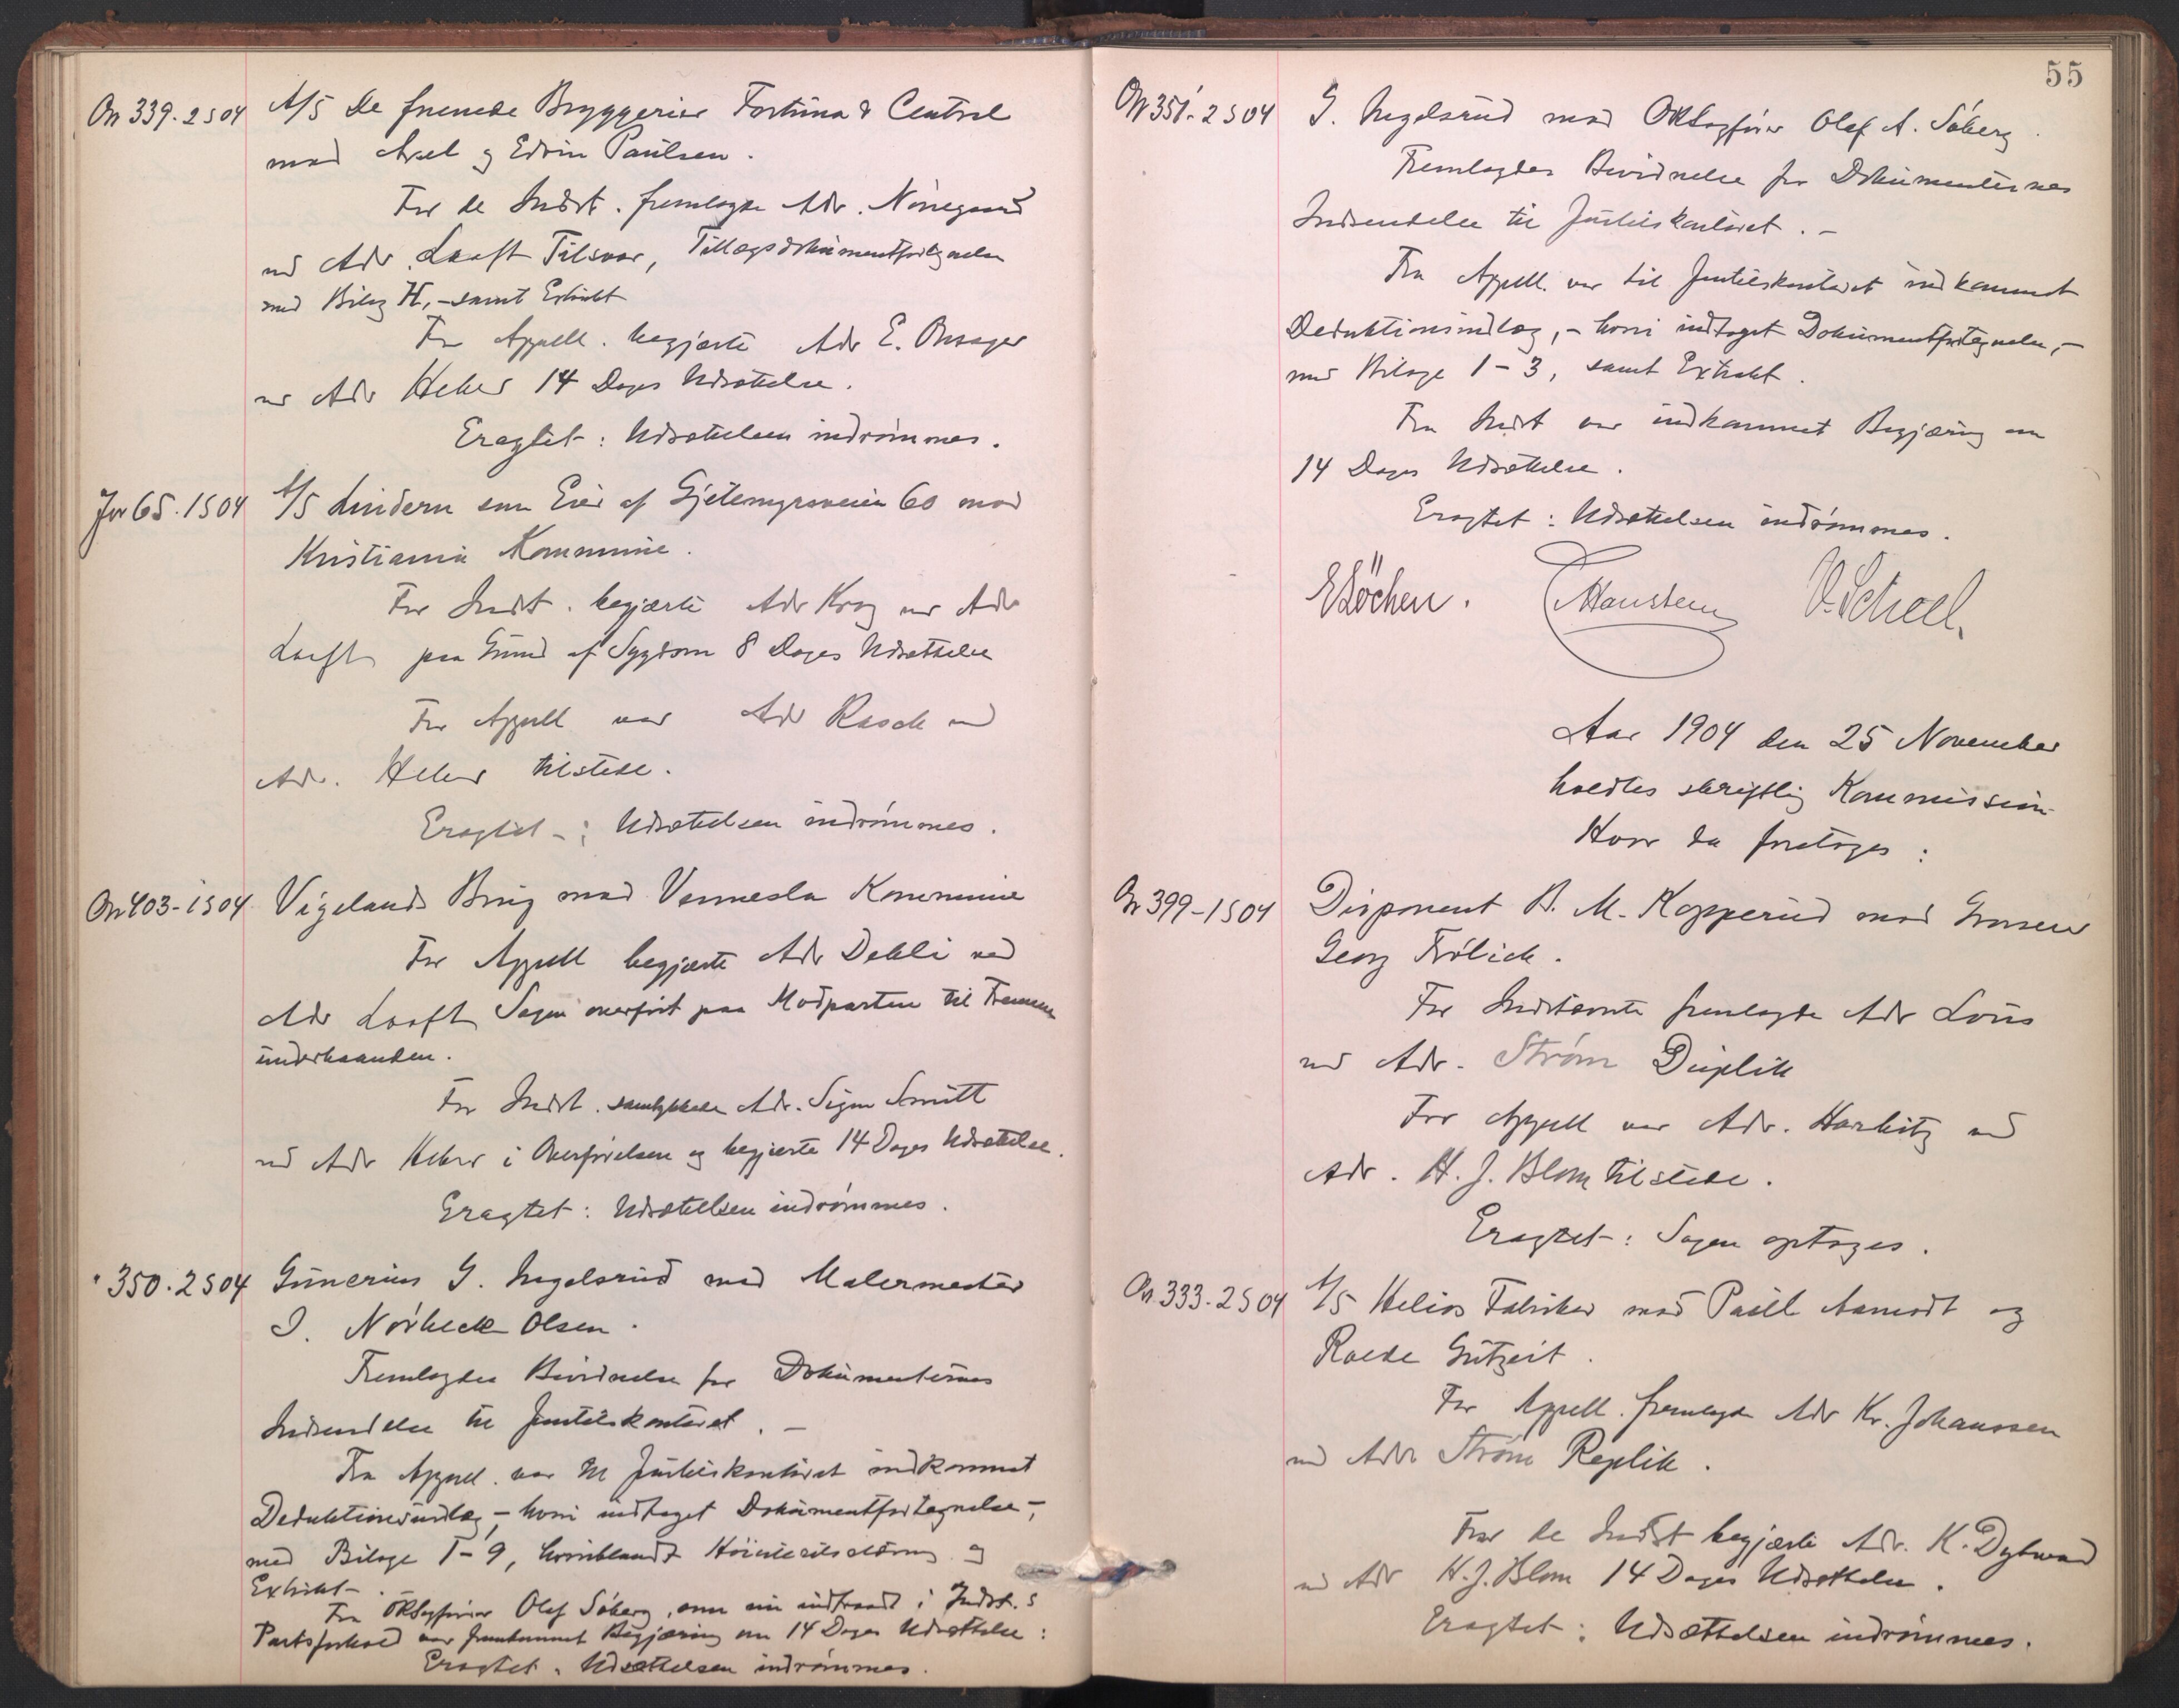 On 339. 2 S 04 A/S De forenede Bryggerier Fortuna & Central
mod Axel og Edvin Paulsen.
For de Indst. fremlagde Adv. Nörregaard
ved Adv. Looft Tilsvar, Tillægsdokumentfortegnelse
med Bilag H, - samt Extrakt
For Appell. begjærte Adv E. Onsager
ved Adv Heber 14 Dages Udsættelse.
Eragtet: Udsættelsen indrömmes.
Jn 65. 1 S 04 A/S Lindern som Eier af Gjetemyrsveien 60 mod
Kristiania Kommune.
For Indst. begjærte Adv Krag ved Adv
Looft paa Grund af Sygdom 8 Dages Udsættelse
For Appell var Adv Rasch ved
Adv. Heber tilstede.
Eragtet -: Udsættelsen indrömmes.
On 403 - 1 S 04 Vigelands Brug mod Vennesla Kommune
For Appell begjærte Adv Dehli ved
Adv Looft Sagen overfört paa Modparten til Fremme
underhaanden.
For Indst. samtykkede Adv. Sigm Smitt
ved Adv Heber i Overförelsen og begjærte 14 Dages Udsættelse.
Eragtet: Udsættelsen indrömmes.
" 350. 2 S 04 Gunerius G. Ingelsrud mod Malermester
I. Nörbeck Olsen.
Fremlagdes Bevidnelse for Dokumenternes
Indsendelse til Justitskontoret. -
Fra Appell. var til Justitskontoret indkommet
Deduktionsindlæg, - hvori indtaget Dokumentfortegnelse, -
med Bilage 1 - 9, hvoriblandt og
Extrakt.
Fra ORSagförer Olef Söberg, som nu indtraadt i Indst.s
Partsforhold var fremkommet Begjæring om 14 Dages Udsættelse:
Eragtet. Udsættelsen indrömmes.
55
On 351. 2 S 04 G. Ingelsrud mod ORSagförer Olef A. Söberg.
Fremlagdes Bevidnelse for Dokumenternes
Indsendelse til Justitskontoret. -
Fra Appell. var til Justitskontoret indkommet
Deduktionsindlæg, - hvori indtaget Dokumentfortegnelse, -
med Bilage 1 - 3, samt Extrakt.
Fra Indst var indkommet Begjæring om
14 Dages Udsættelse.
Eragtet: Udsættelsen indrömmes.
E Löchen. Hansteen V. Scheel.
Aar 1904 den 25 November
holdtes skriftlig Kommission
Hvor da foretoges:
On 399 - 1 S 04 Disponent B. M. Kopperud mod Grosserer
Georg Frölich.
For Indstævnte fremlagde Adv Lous
ved Adv. Ström Duplik
For Appell var Adv. Harbitz ved
Adv. H. J. Blom tilstede.
Eragtet -: Sagen optages.
On 333. 2 S 04 A/S Helios Fabriker mod Paul Aamodt og
Roede Gutzeit.
For Appell. fremlagde Adv Kr. Johanssen
ved Adv Ström Replik.
For de Indst begjærte Adv. K. Dybwad
ved Adv H. J. Blom 14 Dages Udsættelse.
Eragtet: Udsættelsen indrömmes.